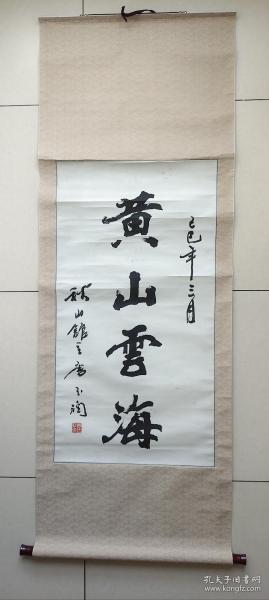 己巳年三月
黄山雲海
秋山館主唐玉润
孔夫子旧书网
www.kongfz.com